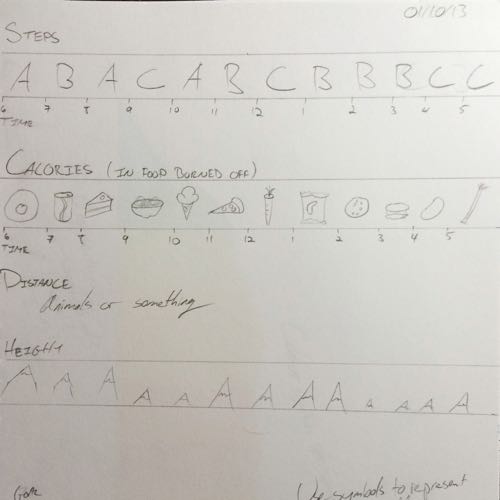 01/10/13
STEPS
A B A C A B C B B B C C
6 7 8 9 10 11 12 1 2 3 4 5
TIME
CALORIES (IN FOOD BURNED OFF)
6 7 8 9 10 11 12 1 2 3 4 5
TIME
DISTANCE
Animals or something
HEIGHT
A A A A A A A A A A A A A
Use symbols to represent